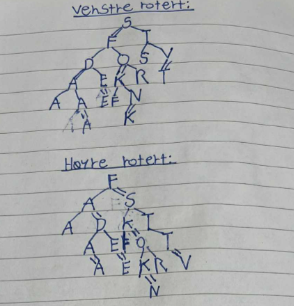 Venstre rotert:
S
F T
D O S V
A E K R T
A A E E F N
A A K
Høyre rotert:
F
A S
A D K T
A E F O T
A E K R V
N